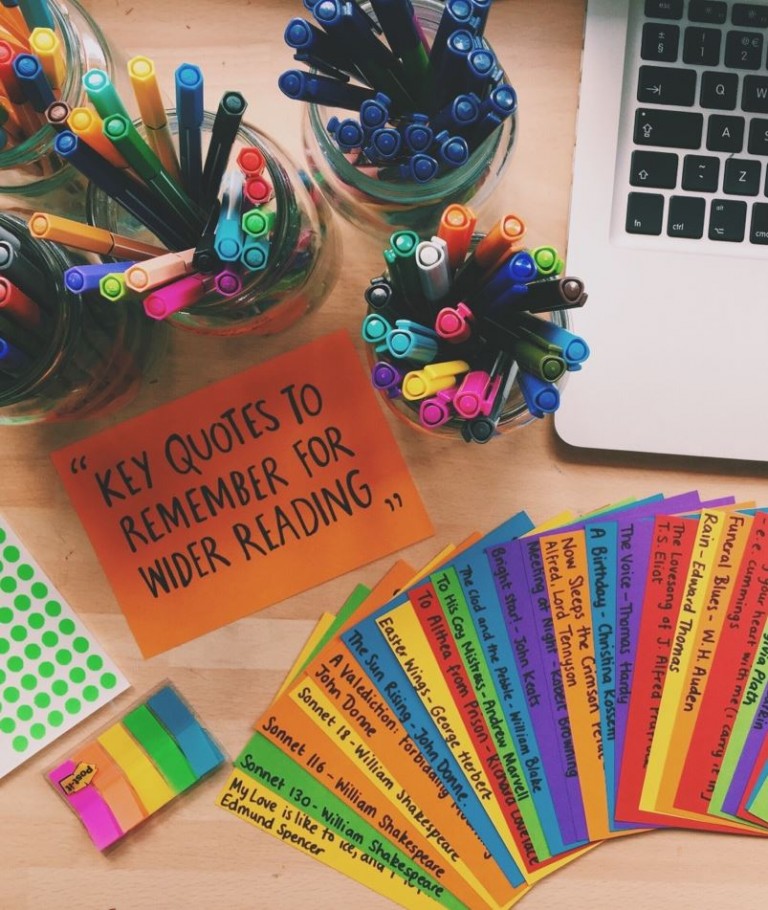 “KEY QUOTES TO
REMEMBER FOR
WIDER READING„
Post-it
My Love is like to ice, and I
Edmund Spencer
Sonnet 130 - William Shakespeare
Sonnet 116 - William Shakespeare
Sonnet 18 - William Shakespeare
A Valediction: Forbidding
John Donne
The Sun Rising - John Donne.
Easter Wings - George Herbert
To Althea from Prison - Richard Lovelace
To His Coy Mistress - Andrew Marvell
The Clod and the Pebble - William Blake
Bright star! - John Keats
Meeting at Night - Robert Browning
Now Sleeps the Crimson Petal
Alfred, Lord Tennyson
A Birthday - Christina Rossetti
The Voice - Thomas Hardy
The Lovesong of J. Alfred
T.S. Eliot
Rain - Edward Thomas
Funeral Blues - W. H. Auden
your heart with me (i carry it in)
- e.e. cummings
Sylvia Plath
esc
±
§
!
1
@ €
2
Q
W
A
S
~
`
Z
fn
ctrl
alt
⌥
cmd